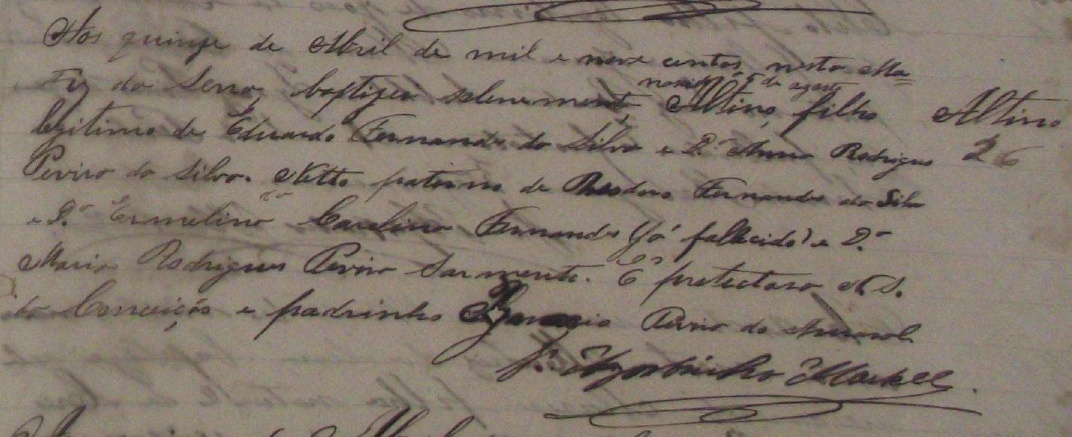 Aos quinze de Abril de mil e nove centos, nesta Ma=
triz da Serra, baptizei solenemente, Altino, filho
nascido a 5 de agosto
Altino
26
legitimo de Eduardo Fernandes da Silva e D. Anna Rodrigues
Pereira da Silva. Netto paterno de Theodoro Fernandes da Silva
e D.ª Ermelina Carolina Fernandes (já fallecido) e D.ª
Maria Rodrigues Pereira Sarmento. É protectora N. S.
da Conceição e padrinho Ignacio Pereira do Amaral.
P.e